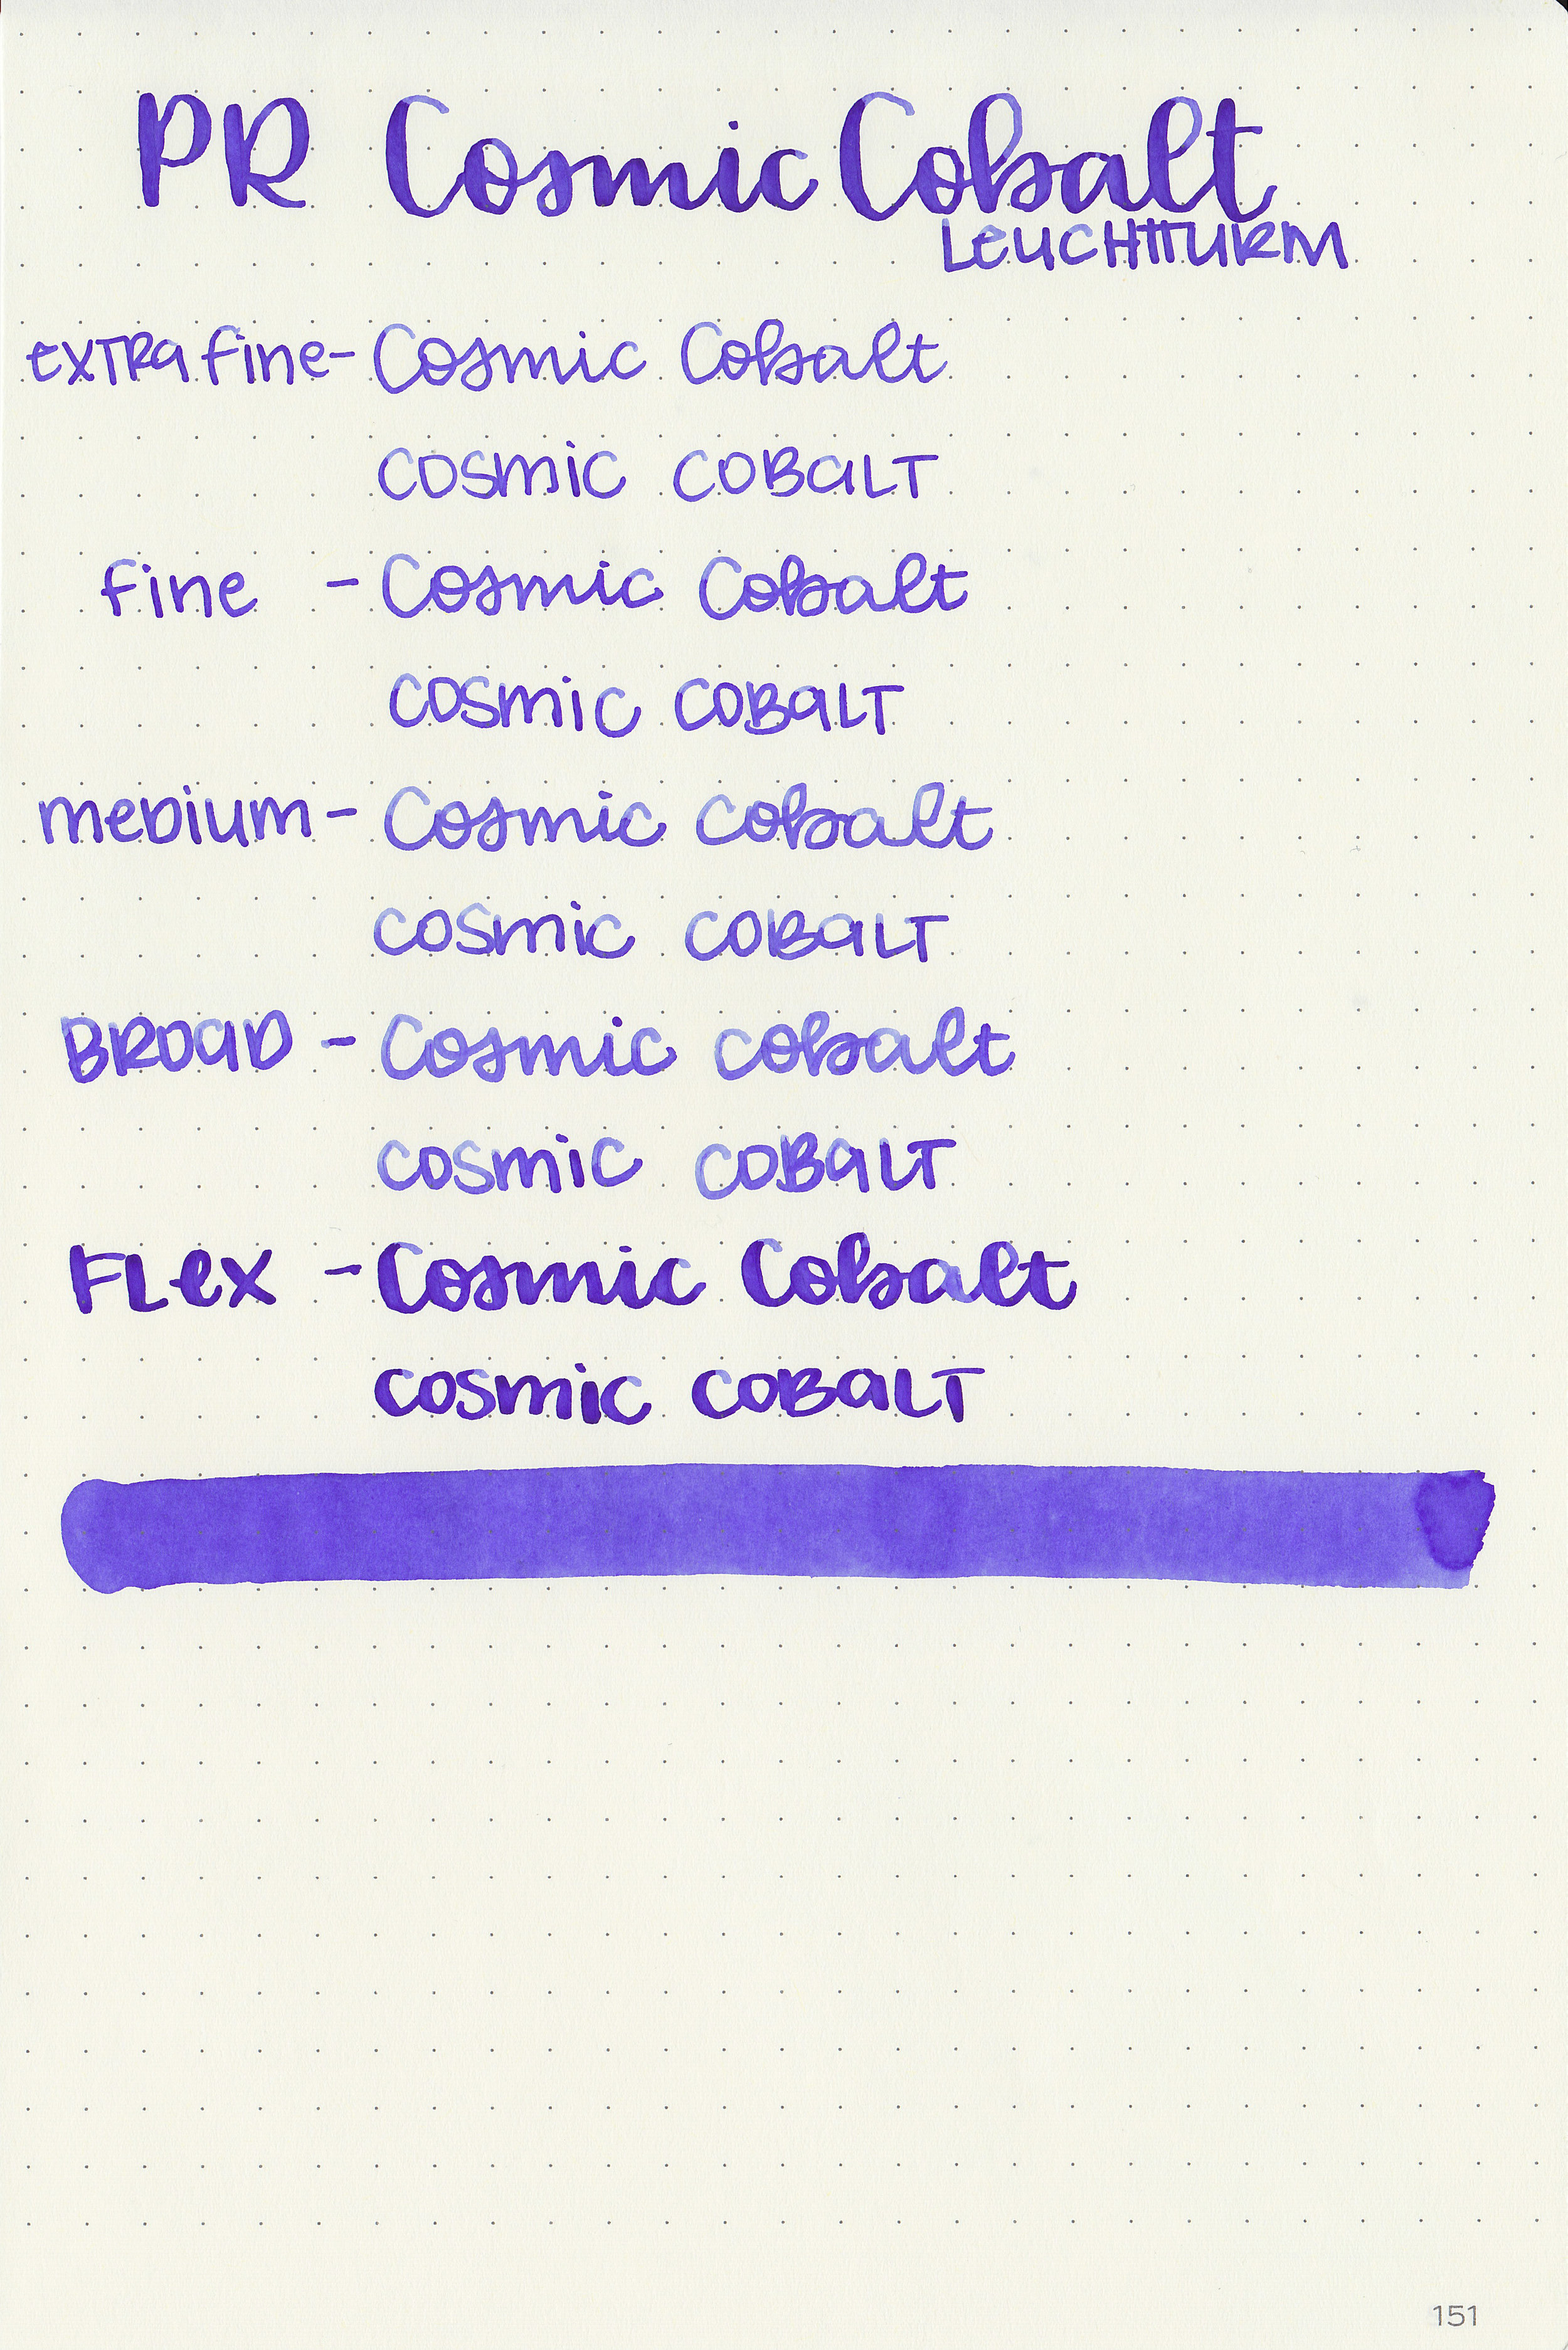 PR Cosmic Cobalt
Leuchtturm
extra fine - Cosmic Cobalt
Cosmic Cobalt
fine - Cosmic Cobalt
Cosmic Cobalt
medium - Cosmic Cobalt
Cosmic Cobalt
Broad - Cosmic Cobalt
Cosmic Cobalt
Flex - Cosmic Cobalt
Cosmic Cobalt
151